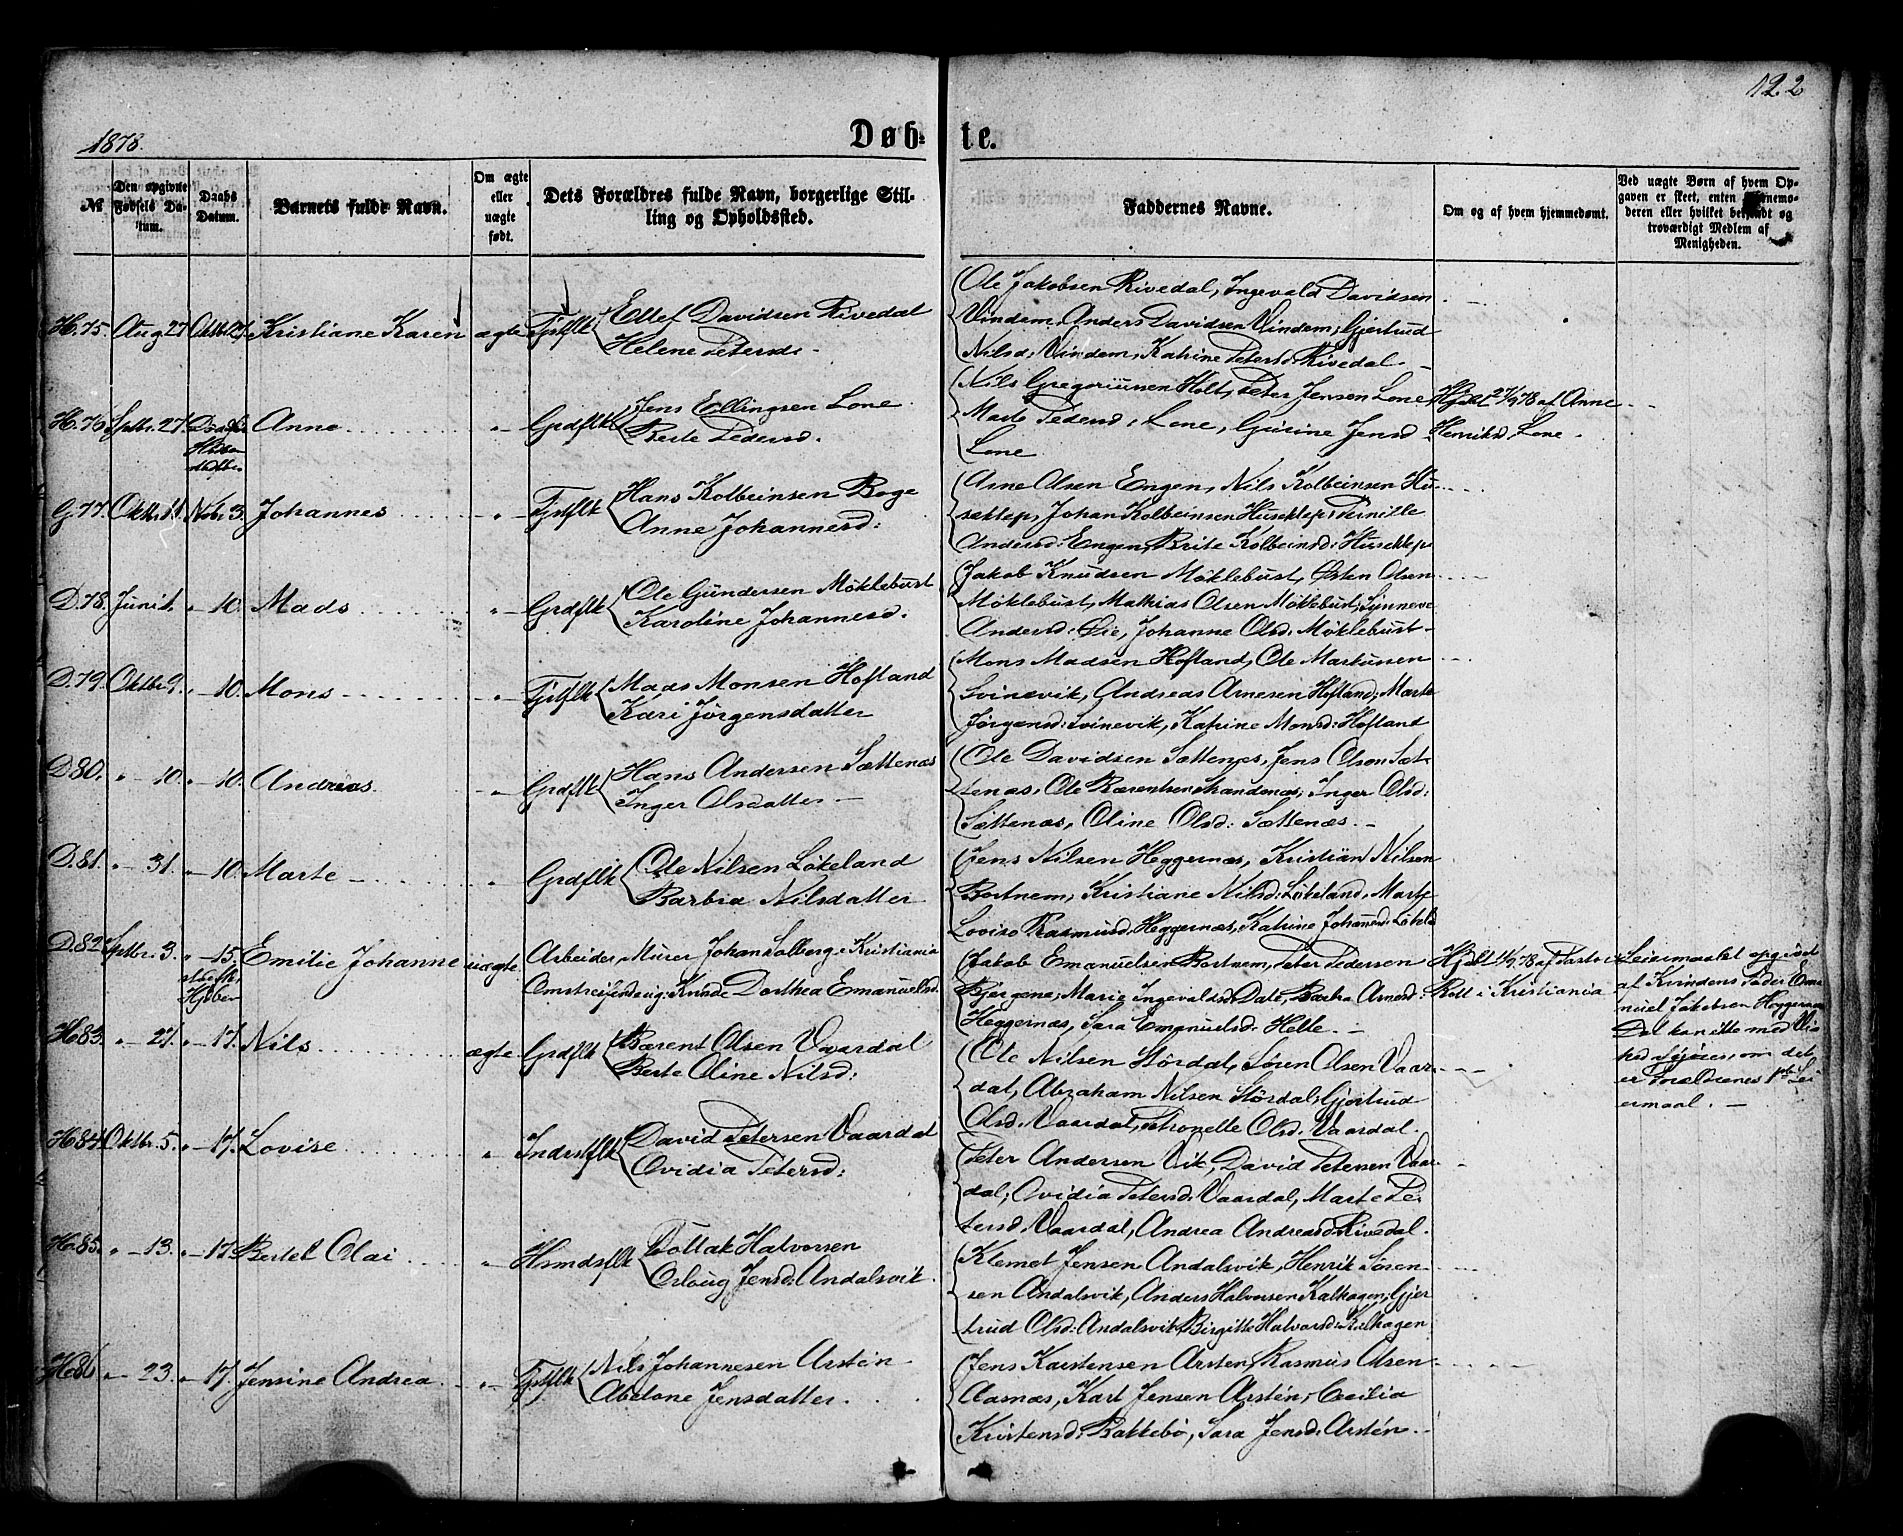 122
1878.
Døb-
te.
№
Den opgivne Fødsels Datum.
Daabs Datum.
Barnets fulde Navn.
Om ægte eller uægte født.
Dets Forældres fulde Navn, borgerlige Stilling og Opholdssted.
Faddernes Navne.
Om og af hvem hjemmedøbt.
Ved uægte Børn af hvem Opgaven er skeet, enten Barnemoderen eller hvilket bekjendt og troværdigt Medlem af Menigheden.
H. 75. Aug 27 Kristiane Karen ægte Fjstflk Ellef Davidsen Rivedal
Helene Petersd. -
Ole Jakobsen Rivedal, Ingevald Davidsen
Vindem, Anders Davidsen Vindem; Gjertrud
Nilsd: Vindem, Katrine Petersd: Rivedal -
H. 76 Sptbr. 27. Anne " Grdflk Jens Ellingsen Lone
Berte Pedersd.
Nils Gregoriussen Holt, Peter Jensen Lone
Mads Pedersd: Lone, Gurine Jensd
Lone
Hjdbt 27/9 78 af Anne
Henriksd. Lone.
G. 77. Oktbr. 11 Nvbr 3. Johannes " Fjstflk Hans Kolbeinsen Boge
Anne Johannesd:
Arne Olsen Engen, Nils Kolbeinsen Hu-
seklep, Johan Kolbeinsen Huseklep; Pernille
Andersd: Engen, Brite Kolbeinsd: Huseklep
D. 78. Juni 1. " 10. Mads " Grdflk Ole Gundersen Møklebust
Karoline Johannesd.
Jakob Knudsen Møklebust, Østen Olsen
Møklebust, Mathias Olsen Møklebust; Synneve
Andersd: Øie, Johanne Olsd: Møklebust -
D. 79. Oktbr 9. " 10. Mons " Fjstflk Mads Monsen Hofland
Kari Jørgensdatter
Mons Madsen Hofland, Ole Markussen
Svinevik, Andreas Arnesen Hofland; Marte
Jørgensd: Svinevik, Katrine Monsd: Hofland
D. 80. " 10. " 10. Andreas " Grdflk Hans Andersen Sættenæs
Inger Olsdatter -
Ole Davidsen Sættenes, Jens Olson Sæt-
tenæs, Ole Bærentsen Strandenæs; Inger Olsd:
Sættenæs, Oline Olsd: Sættenæs. -
D. 81. " 31. " 10. Marte " Grdflk Ole Nilsen Løkeland
Barbra Nilsdatter
Jens Nilsen Heggernæs, Kristian Nilsen
Bortnem, Kristiane Nilsd: Løkeland, Marte
Lovise Rasmusd. Heggernæs, Katrine Johannesd.
D. 82 Sptbr. 3. " 15. Emilie Johanne uægte. Arbeider, Murer Johan Solberg i Kristiania
Kvinde Dorthea Emanuelsd.
Jakob Emanuelsen Bortnem, Peter Pedersen
Bjergene; Marie Ingevaldsd Dale, Barbra Arnesd:
Heggernæs, Sara Emanuelsd: Helle. -
af Pastor
Roll i Kristiania
Leiermaalet opgivet
af Kvindens Fader Ema-
nuel Jakobsen Heggernæs
Det kan ikke med Vis
hed siges, om det
er Forældrenes 1ste Lei
ermaal. -
H. 83. " 21. " 17. Nils ægte Grdflk Bærent Olsen Vaardal
Berte Oline Nilsd:
Ole Nilsen Stordal, Søren Olsen Vaar-
dal, Abraham Nilsen Stordal; Gjertrud
Olsd. Vaardal, Petronelle Olsd: Vaardal.
H. 84 Oktbr. 5. " 17. Lovise " Indrstflk David Petersen Vaardal
Ovidia Petersd:
Peter Andersen Vik, David Petersen Vaar-
dal; Ovidia Petersd: Vaardal, Marte Pe-
tersd. Vaardal, Andrea Andreasd. Rivedal.
H. 85. " 13. " 17. Bertel Olai " Hsmdsflk Tollak Halvorsen
Oslaug Jensd: Andalsvik.
Klemet Jensen Andalsvik, Henrik Søren-
sen Andalsvik, Anders Halvorsen Kalhagen; Gjer
trud Olsd: Andalsvik, Birgitte Halvorsd: Kalhagen
H. 86 " 23. " 17. Jensine Andrea " Fjstflk Nils Johannesen Arsten
Abelone Jensdatter.
Jens Karstensen Arsten, Rasmus Olsen
Aasnæs, Karl Jensen Arsten, Cecilia
Kirstensd: Bakkebø, Sara Jensd: Arsten. -